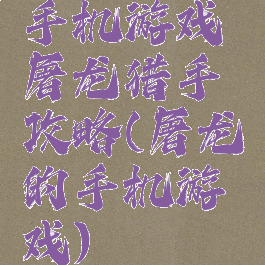 手机游戏
屠龙猎手
攻略(屠龙
的手机游
戏)